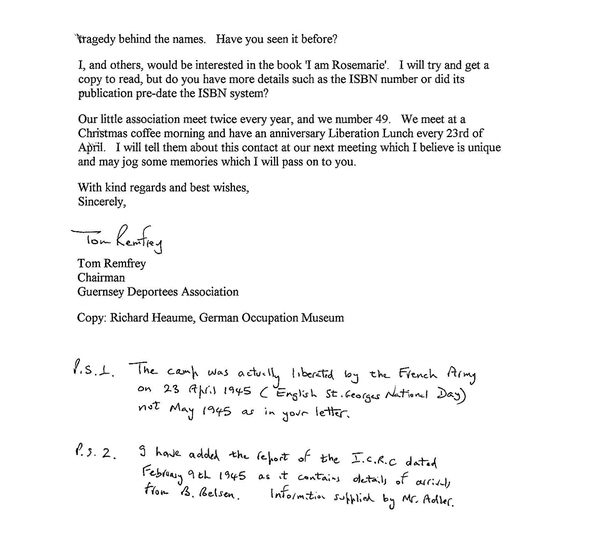 tragedy behind the names. Have you seen it before?
I, and others, would be interested in the book 'I am Rosemarie'. I will try and get a
copy to read, but do you have more details such as the ISBN number or did its
publication pre-date the ISBN system?
Our little association meet twice every year, and we number 49. We meet at a
Christmas coffee morning and have an anniversary Liberation Lunch every 23rd of
April. I will tell them about this contact at our next meeting which I believe is unique
and may jog some memories which I will pass on to you.
With kind regards and best wishes,
Sincerely,
Tom Remfrey
Tom Remfrey
Chairman
Guernsey Deportees Association
Copy: Richard Heaume, German Occupation Museum
P.S.1. The camp was actually liberated by the French Army
on 23 April 1945 (English St. Georges National Day)
not May 1945 as in your letter.
P.S. 2. I have added the report of the I.C.R.C dated
February 9th 1945 as it contains details of arrivals
from B. Belsen. Information supplied by Mr. Adler.